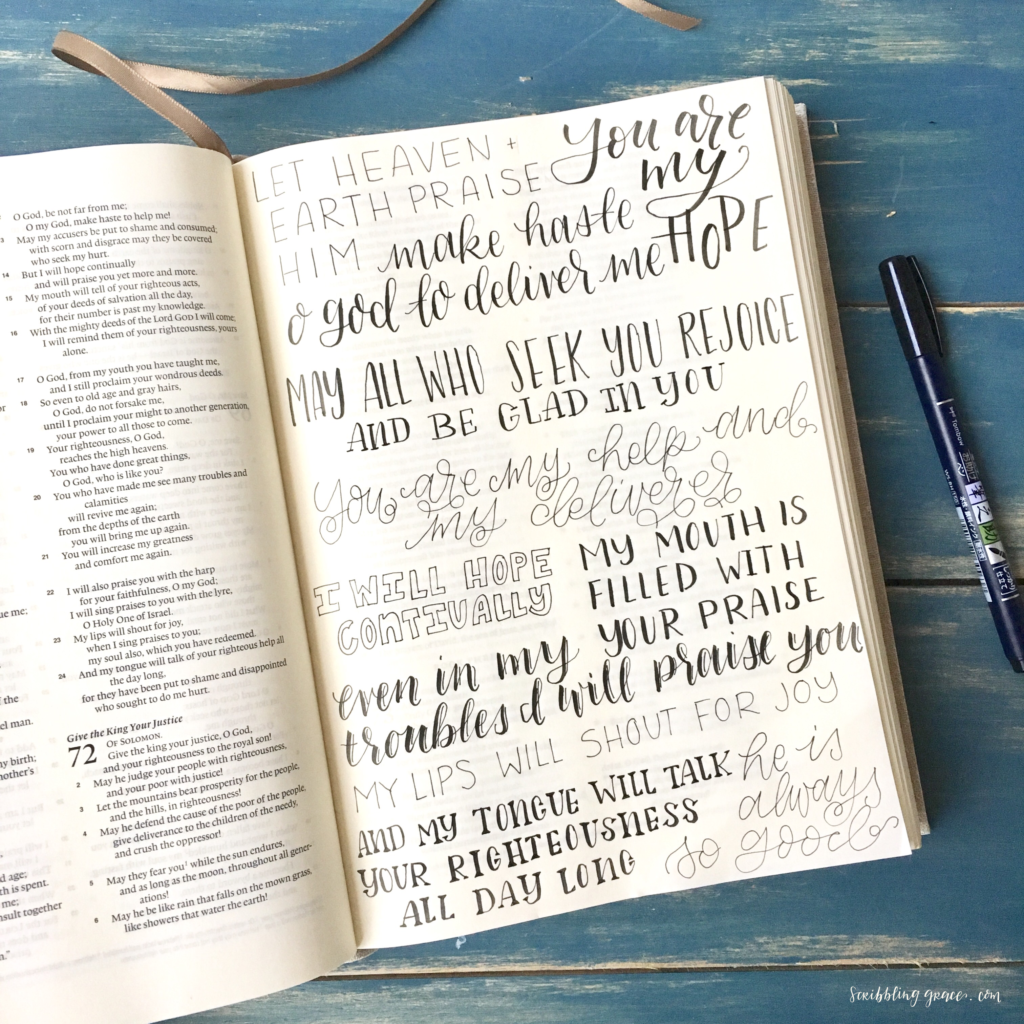 or
ue me;
f the
el man.
ny birth;
other's
d age;
th is spent.
me;
nsult together
n."
O God, be not far from me;
O my God, make haste to help me!
3 May my accusers be put to shame and consumed;
with scorn and disgrace may they be covered
who seek my hurt.
14 But I will hope continually
and will praise you yet more and more.
15 My mouth will tell of your righteous acts,
of your deeds of salvation all the day,
for their number is past my knowledge.
16 With the mighty deeds of the Lord GOD I will come;
I will remind them of your righteousness, yours
alone.
17 O God, from my youth you have taught me,
and I still proclaim your wondrous deeds.
18 So even to old age and gray hairs,
O God, do not forsake me,
until I proclaim your might to another generation,
your power to all those to come.
19 Your righteousness, O God,
reaches the high heavens.
You who have done great things,
O God, who is like you?
20 You who have made me see many troubles and
calamities
will revive me again;
from the depths of the earth
you will bring me up again.
21 You will increase my greatness
and comfort me again.
22 I will also praise you with the harp
for your faithfulness, O my God;
I will sing praises to you with the lyre,
O Holy One of Israel.
23 My lips will shout for joy,
when I sing praises to you;
my soul also, which you have redeemed.
24 And my tongue will talk of your righteous help all
the day long,
for they have been put to shame and disappointed
who sought to do me hurt.
Give the King Your Justice
72 OF SOLOMON.
Give the king your justice, O God,
and your righteousness to the royal son!
2 May he judge your people with righteousness,
and your poor with justice!
3 Let the mountains bear prosperity for the people,
and the hills, in righteousness!
4 May he defend the cause of the poor of the people,
give deliverance to the children of the needy,
and crush the oppressor!
5 May they fear you¹ while the sun endures,
and as long as the moon, throughout all gener-
ations!
6 May he be like rain that falls on the mown grass,
like showers that water the earth!
LET HEAVEN +
EARTH PRAISE
HIM
You are
my
HOPE
make haste
o god to deliver me
MAY ALL WHO SEEK YOU REJOICE
AND BE GLAD IN YOU
You are my help and
my deliverer
I WILL HOPE
CONTINUALLY
MY MOUTH IS
FILLED WITH
YOUR PRAISE
even in my
troubles I will praise you
MY LIPS WILL SHOUT FOR JOY
AND MY TONGUE WILL TALK
YOUR RIGHTEOUSNESS
ALL DAY LONG
he is
always
so good
Tombow
scribbling grace.com